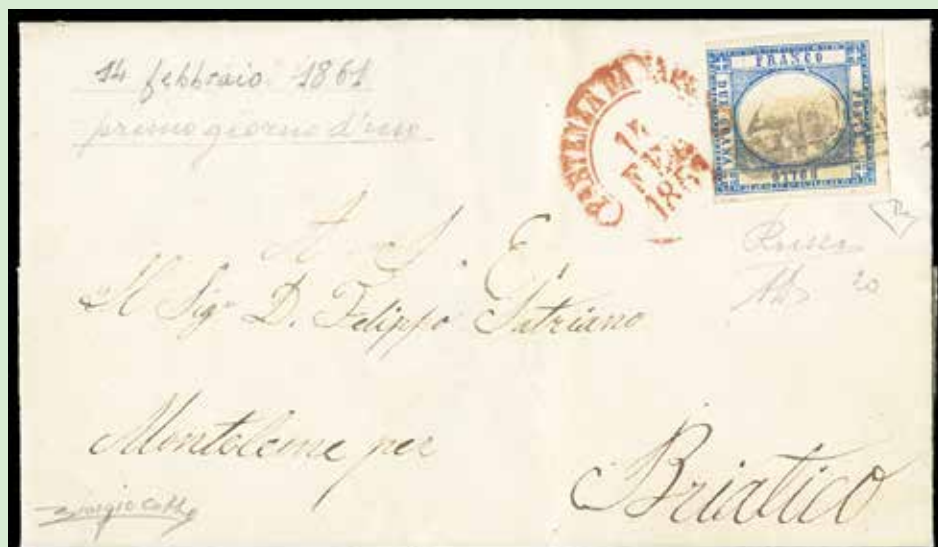 14 febbraio 1861
primo giorno d'uso
PARTENZA DA
FEB
FRANCO
DUE GRANA
POSTA
BOLLO
A S. E.
Il Sigr D. Filippo Satriano
Monteleone per
Briatico